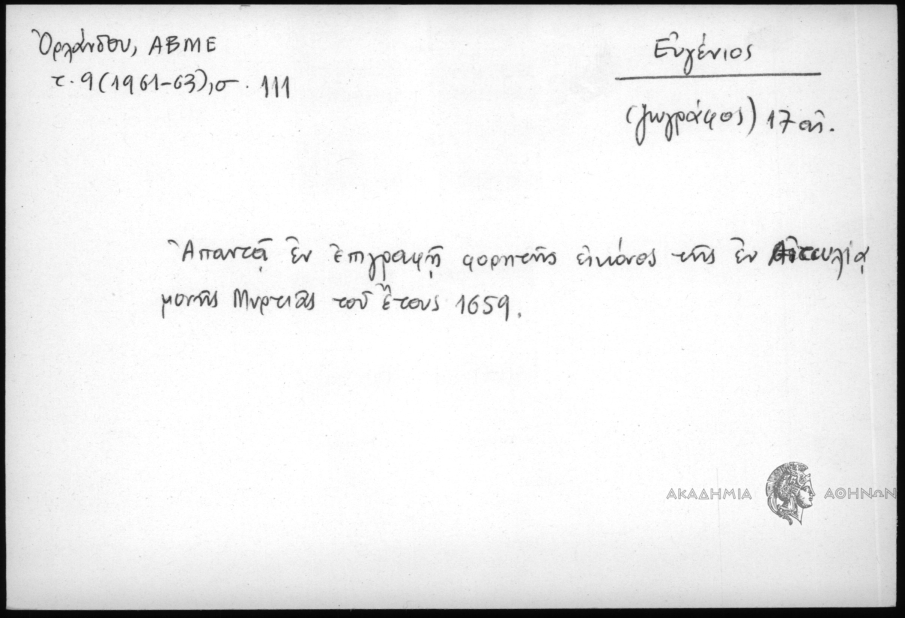 Ὀρλάνδου, ΑΒΜΕ
τ. 9 (1961-63), σ. 111
Εὐγένιος
(ζωγράφος) 17 αἰ.
Ἀπαντᾷ ἐν ἐπιγραφῇ φορητῆς εἰκόνος τῆς ἐν Αἰτωλίᾳ
μονῆς Μυρτιᾶς τοῦ ἔτους 1659.
ΑΚΑΔΗΜΙΑ ΑΘΗΝΩΝ